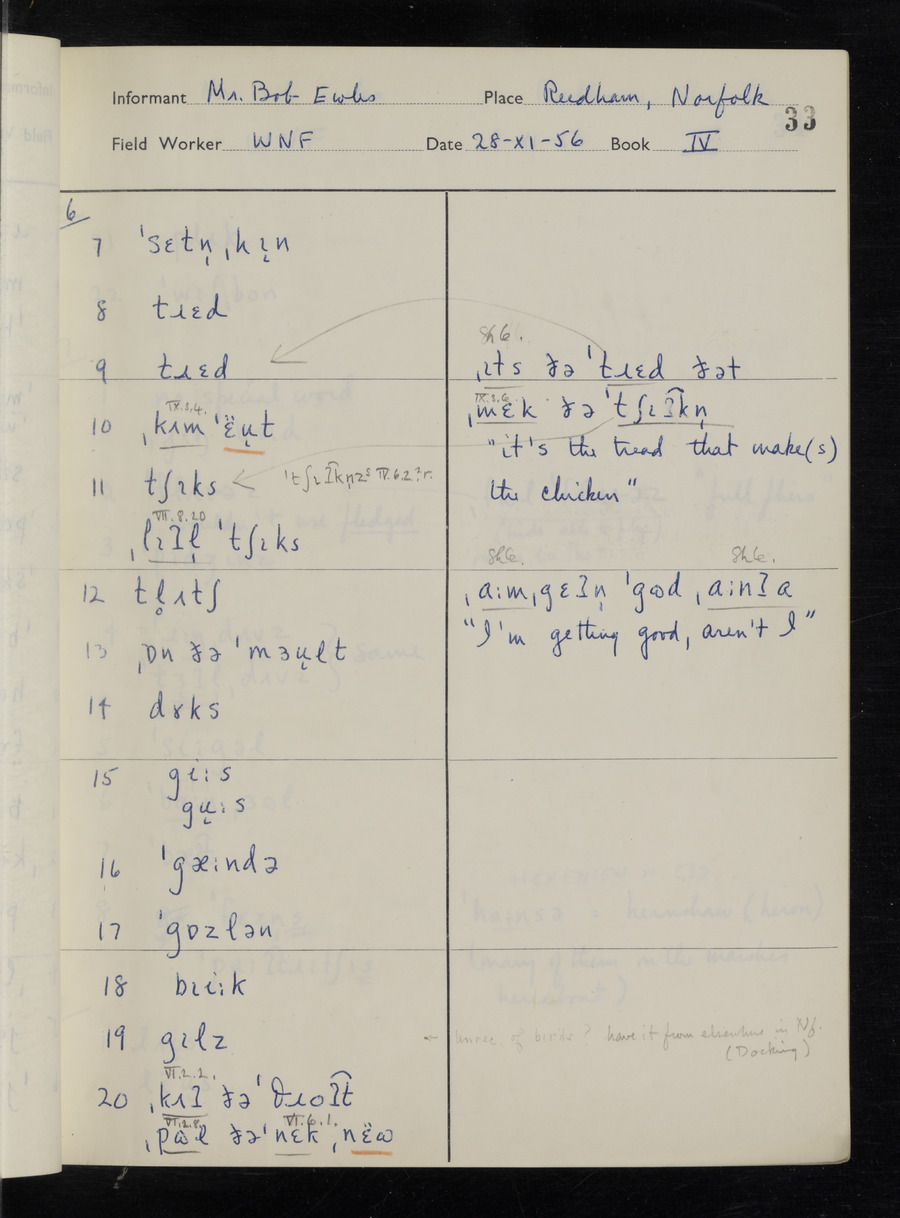 Informant Mr. Bob Ewles Place Reedham, Norfolk
33
Field Worker WNF Date 28-XI-56 Book IV
6
7 ˈsɛtn̩ ˌhɪ̞n
8 tɹɛd
9 tɹɛd
10 ˌkʌm ˈɛ̈ṳt
IX.3.4.
11 tʃɪks
ˈtʃɪʔkn̩z IV.6.2
VII.8.20
ˌlɪʔl̩ ˈtʃɪks
12 tl̥ɪtʃ
13 ˌɒn ðə ˈmɜʊlt
14 dɤks
15 gi:s
gʉ:s
16 ˈgæ:ndə
17 ˈgɒzlən
18 bɹi:k
19 gɪlz
20 ˌkʌʔ ðə ˈθɹoʔt
VI.2.2.
VI.2.8. VI.6.1.
ˌpɷl ðə ˈnɛk ˌnɛ̈ɷ
Sh6.
ˌɪts ðə ˈtɹɛd ðət
IX.3.6
ˌmɛk ðə ˈtʃɪʔkn̩
"it's the tread that make(s)
the chicken"
Sh6. Sh6.
ˌa:m ˌgɛʔn̩ ˈgɷd ˌa:nʔ a
"I'm getting good, aren't I"
← of birds? have it from elsewhere in Nf.
(Docking)